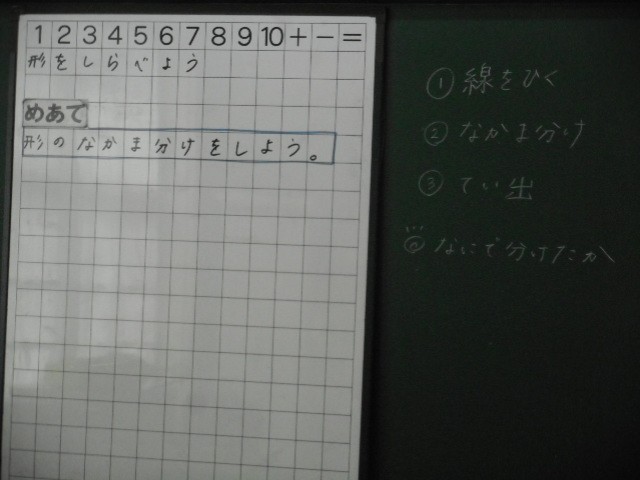 1 2 3 4 5 6 7 8 9 10 + − =
形をしらべよう
めあて
形のなかま分けをしよう。
①線をひく
②なかま分け
③てい出
なにで分けたか